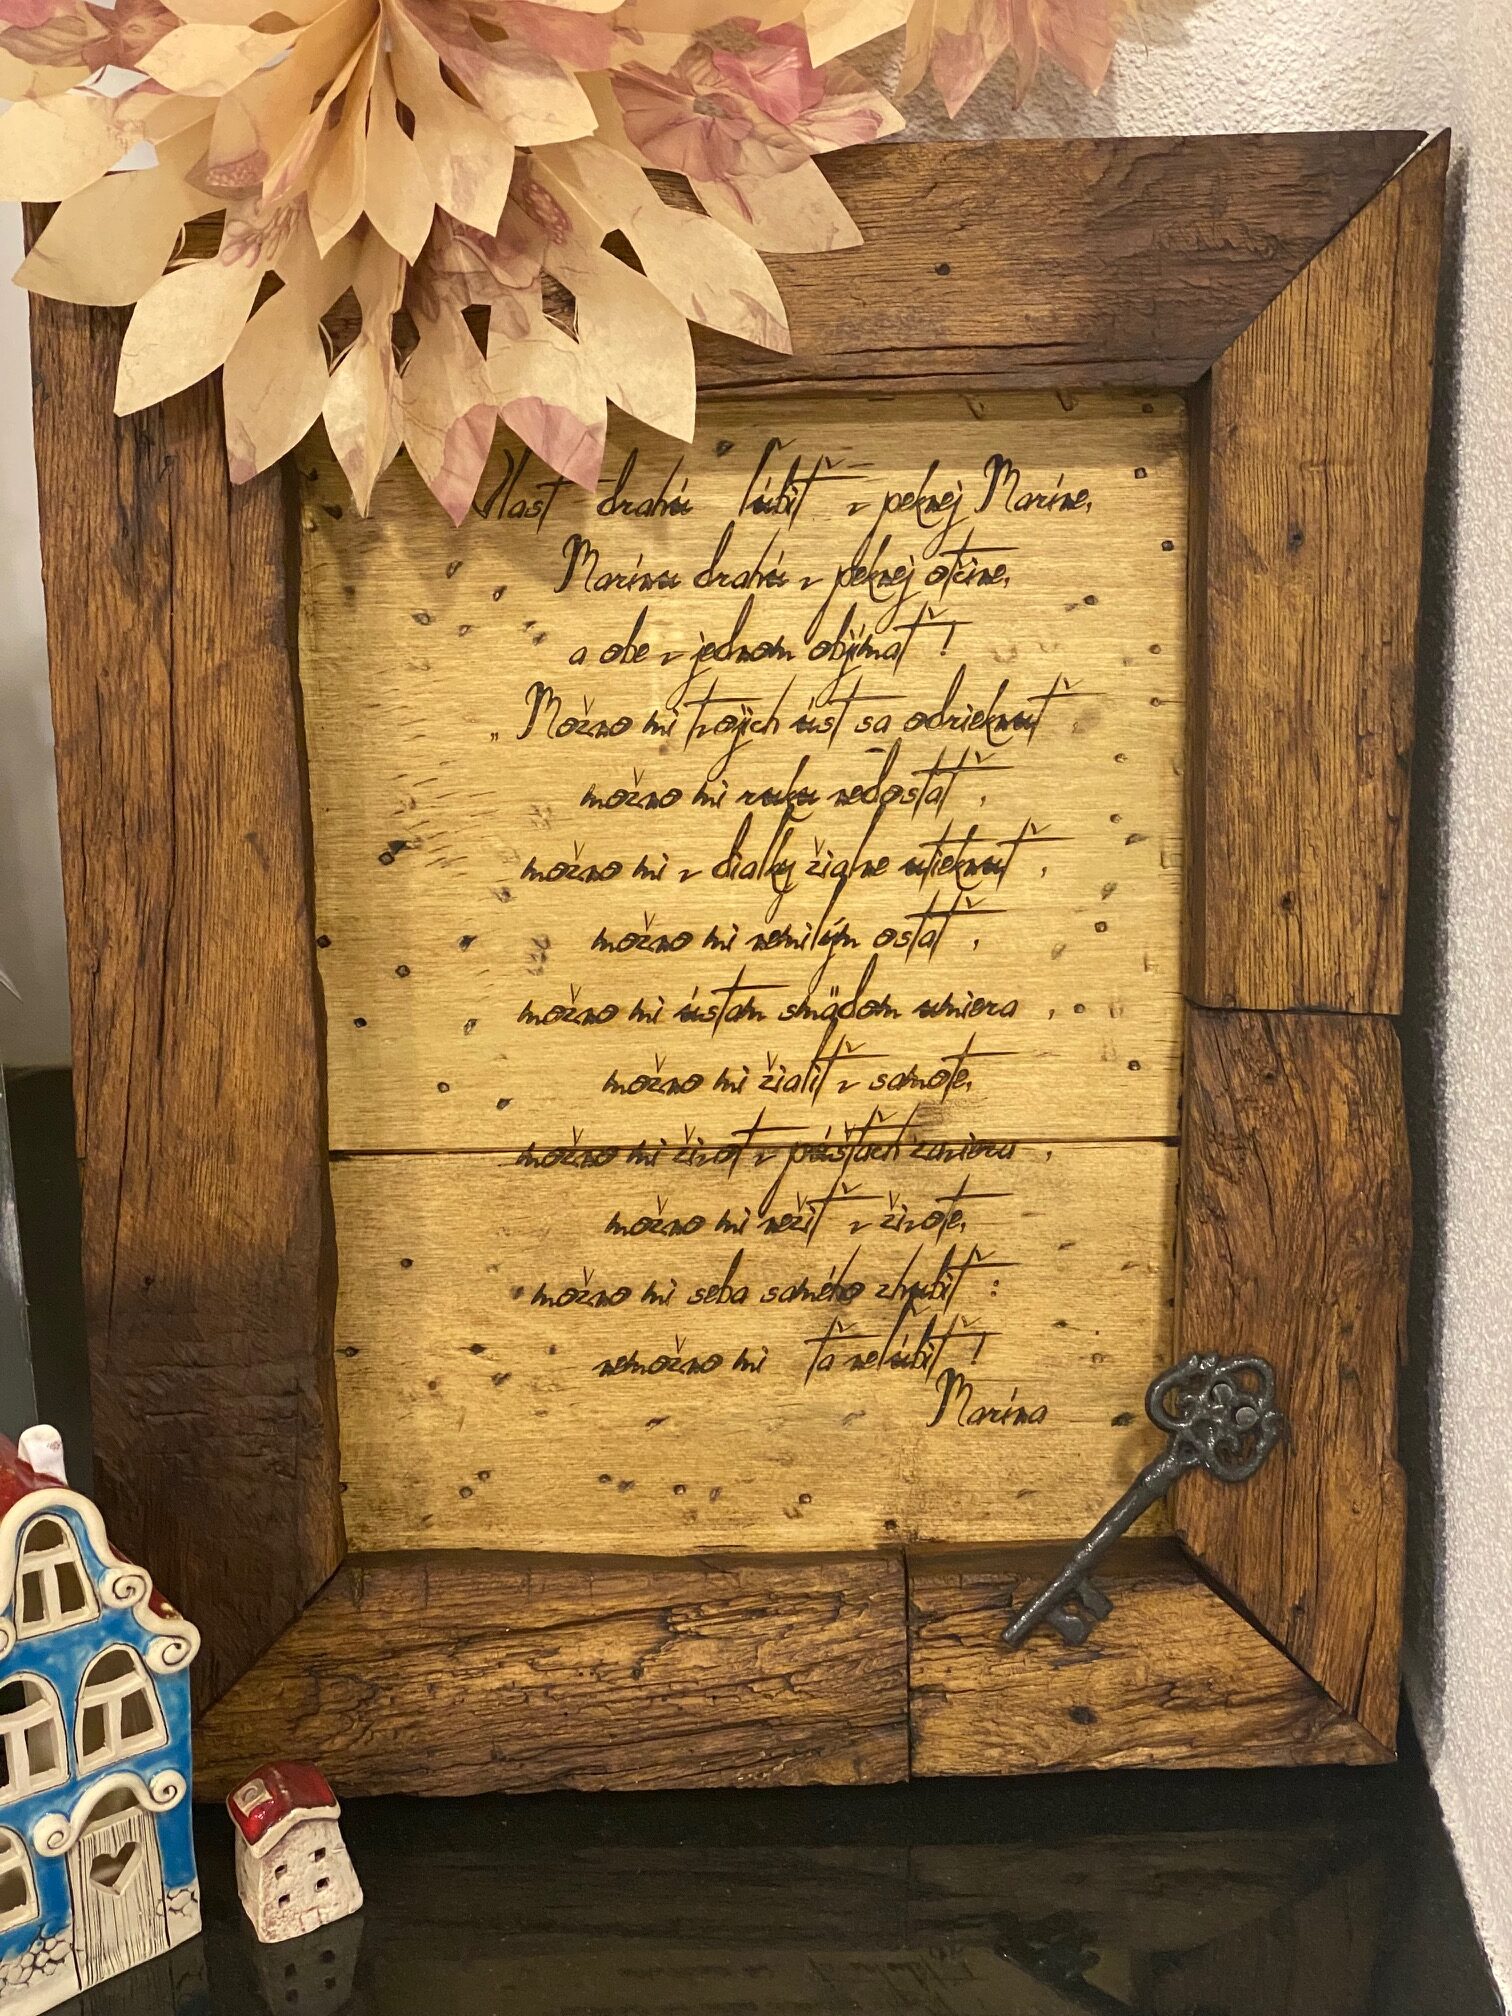 Vlasť drahú ľúbiť v peknej Maríne,
Marínu drahú v peknej otčine,
a obe v jednom objímať!
„Možno mi tvojich úst sa odrieknuť
možno mi ruku nedostať,
možno mi v diaľky žiaľne utieknuť,
možno mi nemilým ostať,
možno mi ústam smädom umiera ,
možno mi žialiť v samote,
možno mi život v púšťach zaviera ,
možno mi nežiť v živote,
možno mi seba samého zhubiť :
nemožno mi ťa neľúbiť!
Marína